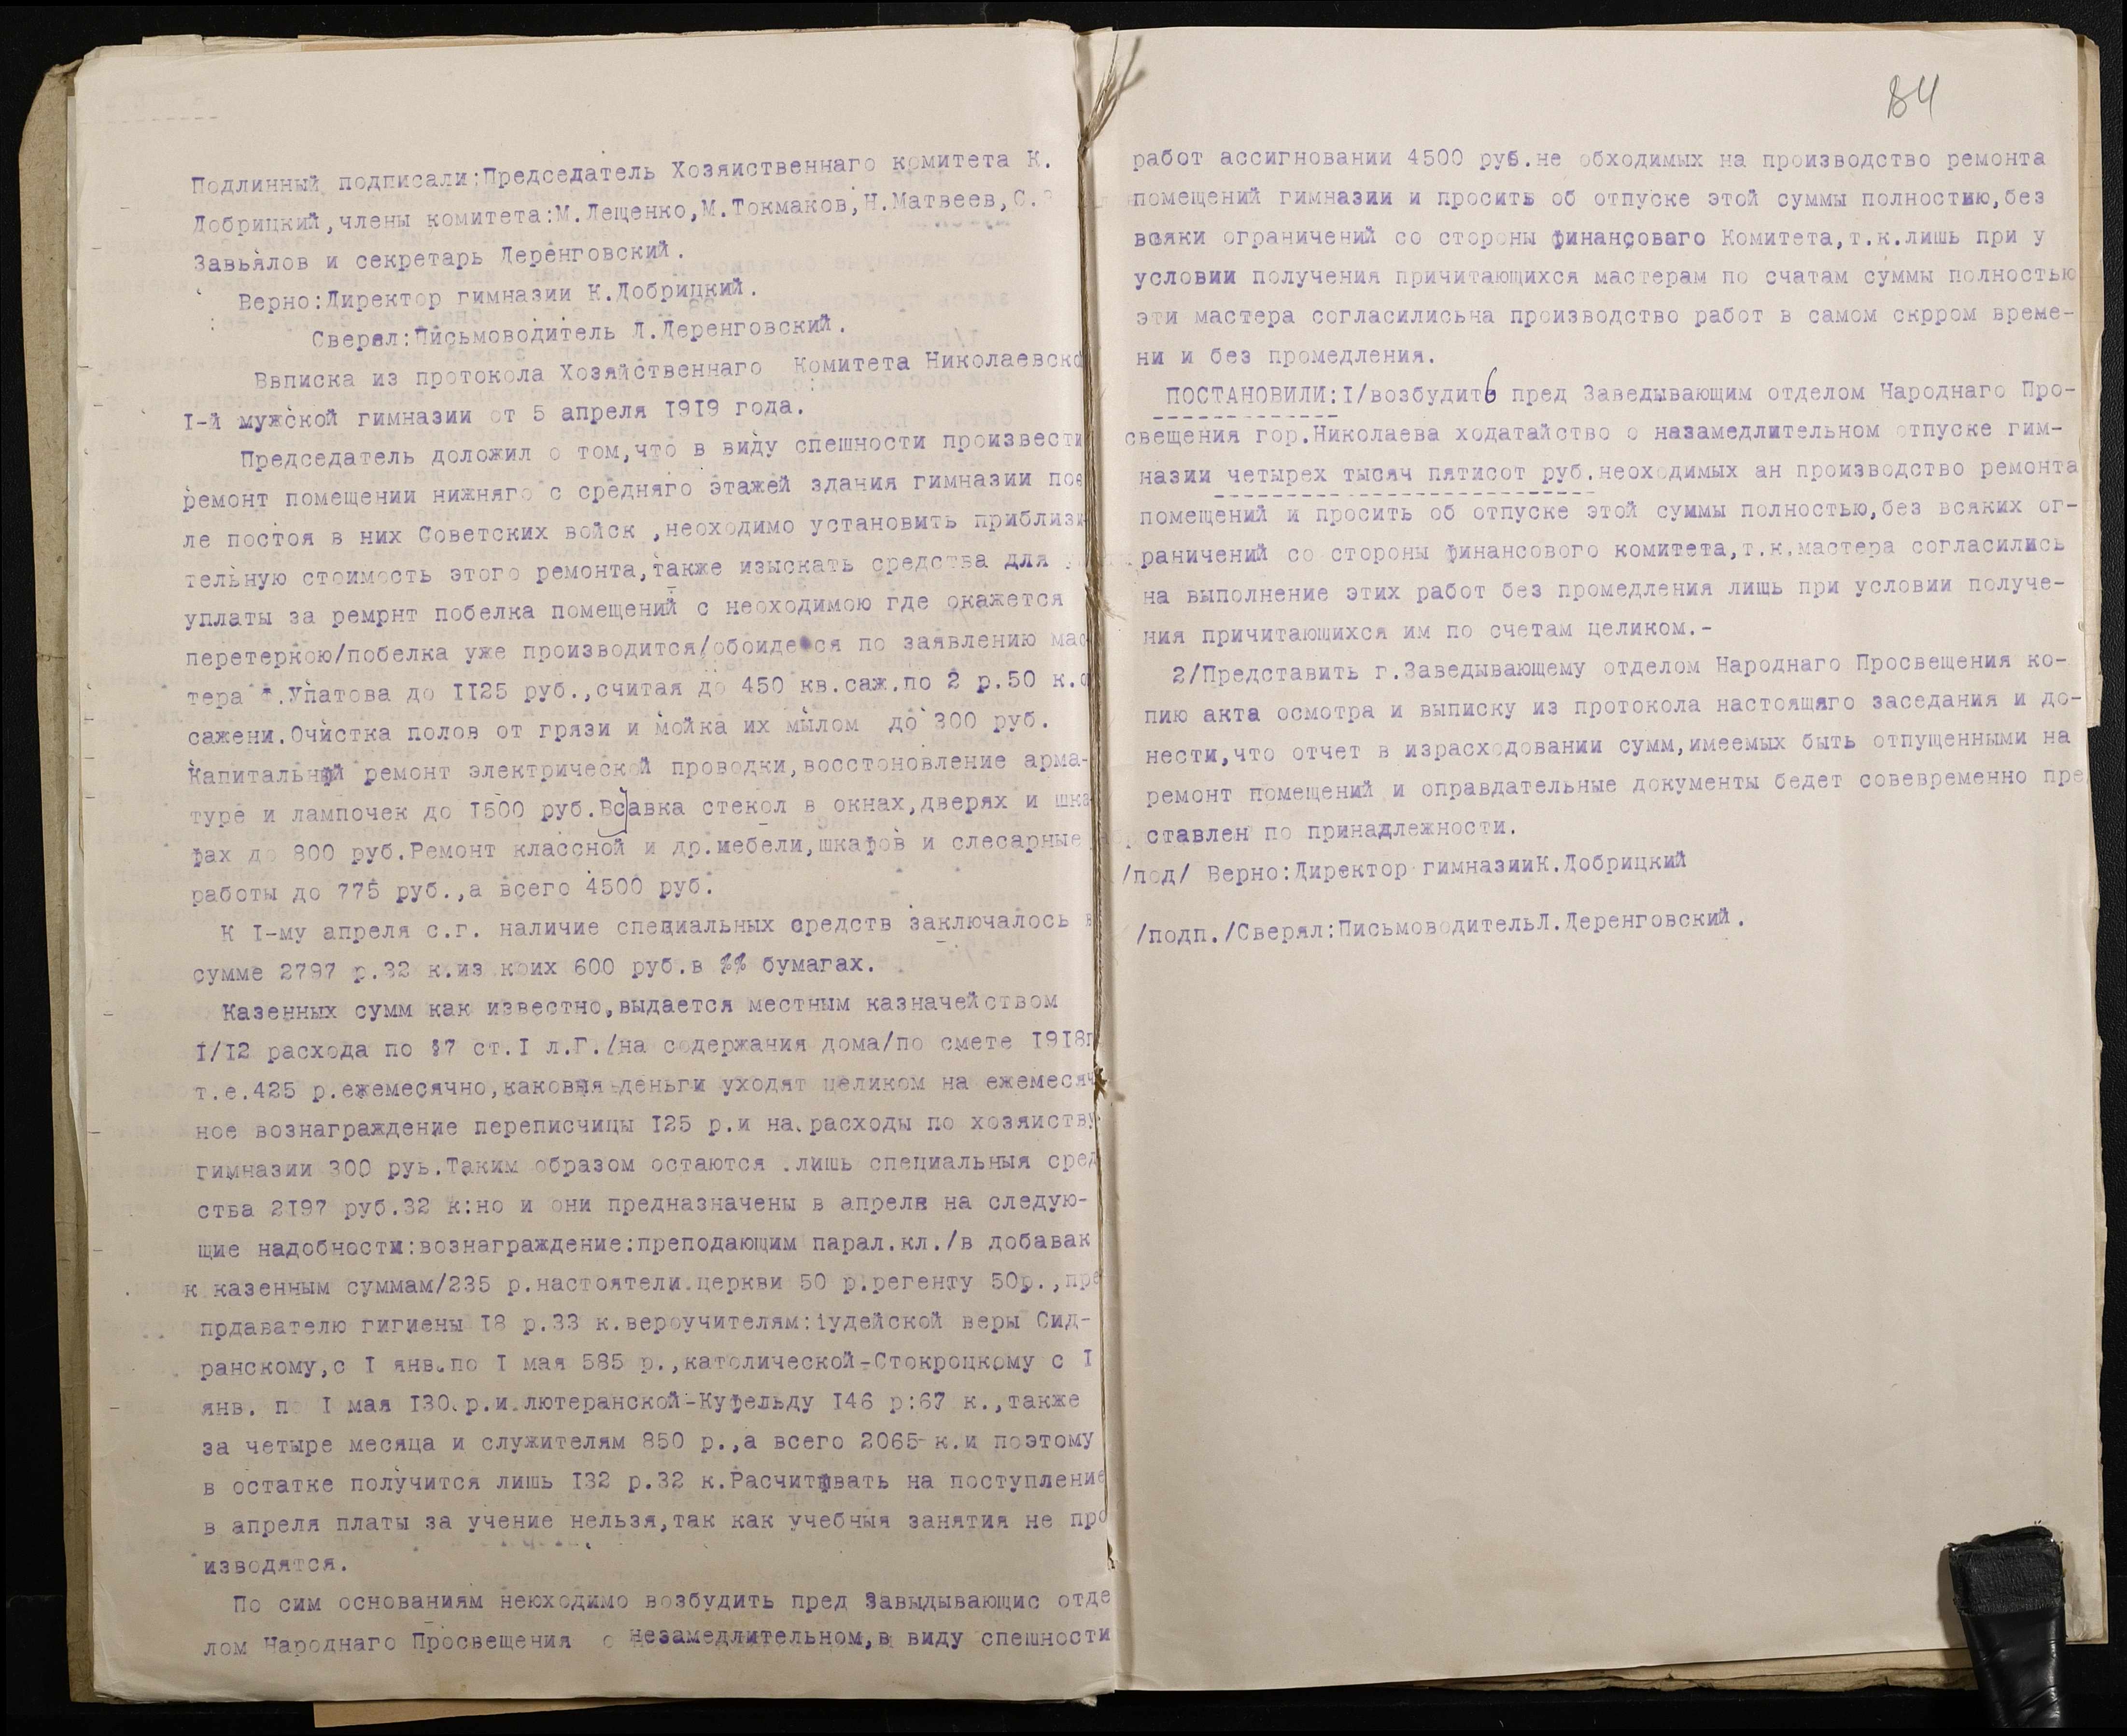 Подлинный подписали:Председатель Хозяиственнаго комитета К.
Добрицкий,члены комитета:М.Лещенко,М.Токмаков,Н.Матвеев,С.
Завьялов и секретарь Деренговский.
Верно:Директор гимназии К.Добрицкий.
Сверял:Письмоводитель Л.Деренговский.
Ввписка из протокола Хозяйственнаго Комитета Николаевско
I-й мужской гимназии от 5 апреля 1919 года.
Председатель доложил о том,что в виду спешности произвести
ремонт помещении нижняго с средняго этажей здания гимназии пос
ле постоя в них Советских войск ,неоходимо установить приблизи
тельную стоимость этого ремонта,также изыскать средства для
уплаты за ремрнт побелка помещений с неоходимою где окажется
перетеркою/побелка уже производится/обоидется по заявлению мас
тера .Упатова до II25 руб.,считая до 450 кв.саж.по 2 р.50 к.
сажени.Очистка полов от грязи и мойка их мылом до 300 руб.
Капитальный ремонт электрической проводки,восстоновление арма-
туре и лампочек до I500 руб.Вставка стекол в окнах,дверях и шка
фах до 800 руб.Ремонт классной и др.мебели,шкафов и слесарные
работы до 775 руб.,а всего 4500 руб.
К I-му апреля с.г. наличие специальных средств заключалось в
сумме 2797 р.32 к.из коих 600 руб.в %% бумагах.
Казенных сумм как известно,выдается местным казначейством
I/I2 расхода по §7 ст.I л.Г./на содержания дома/по смете I9I8г
т.е.425 р.ежемесячно,каковыя деньги уходят целиком на ежемесяч
ное вознаграждение переписчицы I25 р.и на расходы по хозяиству
гимназии 300 руь.Таким образом остаются .лишь специальныя сред
ства 2I97 руб.32 к:но и они предназначены в апреля на следую-
щие надобности:вознаграждение:преподающим парал.кл./в добавак
к казенным суммам/235 р.настоятели.церкви 50 р.регенту 50р.,пре
прдавателю гигиены I8 р.33 к.вероучителям:іудейской веры Сид-
ранскому,с I янв.по I мая 585 р.,католической-Стокроцкому с I
янв. по I мая I30 р.и лютеранской-Куфельду I46 р:67 к.,также
за четыре месяца и служителям 850 р.,а всего 2065-к.и поэтому
в остатке получится лишь I32 р.32 к.Расчитывать на поступление
в апреля платы за учение нельзя,так как учебныя занятия не про
изводятся.
По сим основаниям неюходимо возбудить пред Завыдывающис отде
лом Народнаго Просвещения о незамедлительном,в виду спешности
84
работ ассигновании 4500 руб.не обходимых на производство ремонта
помещений гимназии и просить об отпуске этой суммы полностию,без
всяки ограничений со стороны финансоваго Комитета,т.к.лишь при у
условии получения причитающихся мастерам по счатам суммы полностью
эти мастера согласилисьна производство работ в самом скрром време-
ни и без промедления.
ПОСТАНОВИЛИ:I/возбудить пред Заведывающим отделом Народнаго Про-
свещения гор.Николаева ходатайство о назамедлительном отпуске гим-
назии четырех тысяч пятисот руб.неоходимых ан производство ремонта
помещений и просить об отпуске этой суммы полностью,без всяких ог-
раничений со стороны финансового комитета,т.к.мастера согласились
на выполнение этих работ без промедления лишь при условии получе-
ния причитающихся им по счетам целиком.-
2/Представить г.Заведывающему отделом Народнаго Просвещения ко-
пию акта осмотра и выписку из протокола настоящяго заседания и до-
нести,что отчет в израсходовании сумм,имеемых быть отпущенными на
ремонт помещений и оправдательные документы бедет совевременно пре
ставлен по принадлежности.
/под/ Верно:Директор гимназииК.Добрицкий
/подп./Сверял:ПисьмоводительЛ.Деренговский.